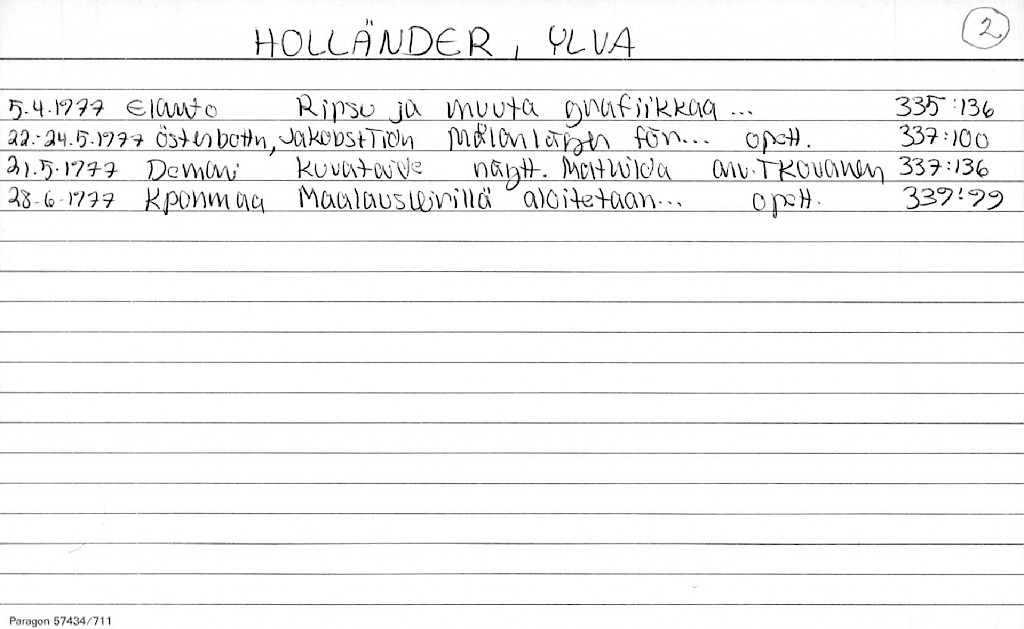 HOLLÄNDER, YLVA
2
5.4.1977 Elanto Ripsu ja muuta grafiikkaa ... 335:136
22.-24.5.1977 Österbottn, Jakobst Tidn Målarläger för... opett. 337:100
21.5.1977 Demari Kuvataide näytt. Mathilda arv. TKovanen 337:136
28.6.1977 Kpohmaa Maalausleirillä aloitetaan... opett. 339:99
Paragon 57434/711